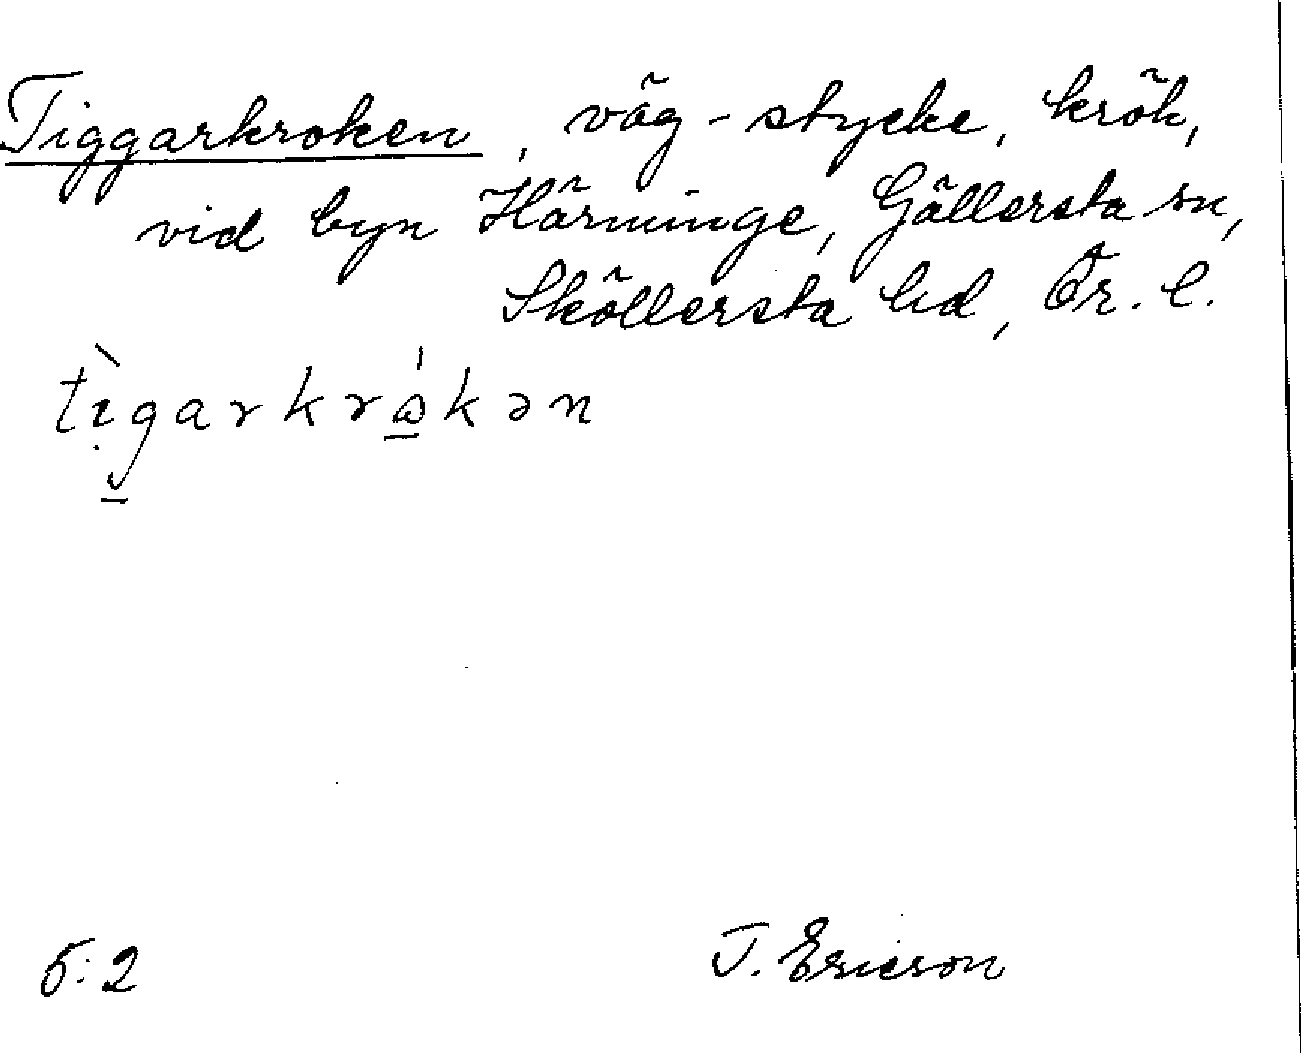 Tiggarkroken, väg-stycke, krök,
vid byn Härminge, Gällersta sn,
Sköllersta hd, Ör. l.
tìgarkrókən
5:2 J. Ericson